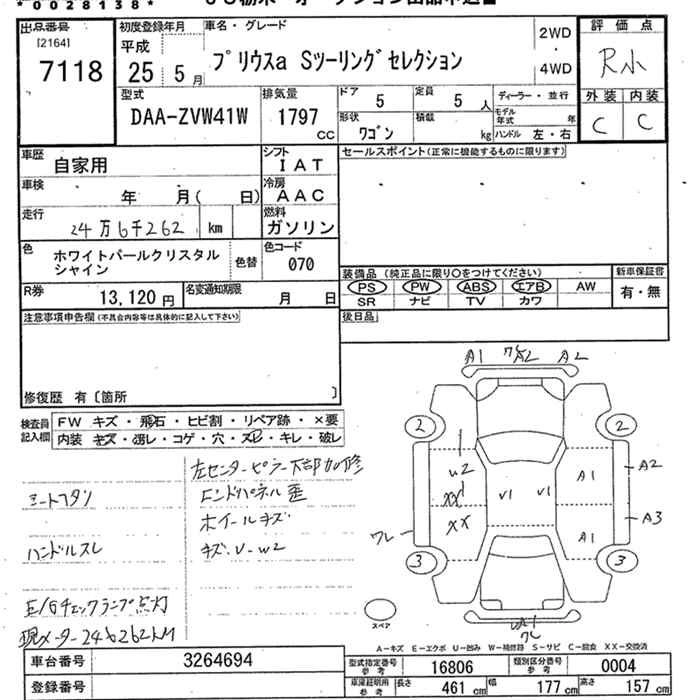 *0028138*
出品番号 初度登録年月 車名・グレード 評価点
[2164]
7118
平成
25 5月
プリウスa Sツーリングセレクション
2WD
4WD
R小
型式 排気量 ドア 定員 ディーラー・並行 外装 内装
DAA-ZVW41W 1797 cc 5 5 人
形状 積載 モデル年式 年
ワゴン kg ハンドル 左・右
C C
車歴 自家用 シフト IAT セールスポイント(正常に機能するものに限ります)
車検 年 月( 日) 冷房 AAC
走行 24万6千262 km 燃料 ガソリン
色 ホワイトパールクリスタル
シャイン
色替 色コード 070
装備品(純正品に限り○をつけてください) 新車保証書
PS PW ABS エアB AW 有・無
SR ナビ TV カワ
R券 13,120円 名変通知期限 月 日
注意事項申告欄(不具合内容等は具体的に記入して下さい) 後日品
修復歴 有〔箇所 〕
検査員
記入欄
FW キズ・飛石・ヒビ割・リペア跡・×要
内装 キズ・汚レ・コゲ・穴・スレ・キレ・破レ
左センターピラー下部加修
エンドパネル歪
ホイールキズ
キズ U-W2
ハンドルスレ
E/Gチェックランプ点灯
現メーター246262KM
A1 A2 A2
2 2
W2 A1 A2
XX V1 V1
XX A3
ワレ A1
3 3
スペア
ワレ
A-キズ E-エクボ U-凹み W-補修跡 S-サビ C-腐食 XX-交換済
車台番号 3264694
登録番号
型式指定番号 参考 16806 類別区分番号 参考 0004
車庫証明用 参考 長さ 461 cm 幅 177 cm 高さ 157 cm